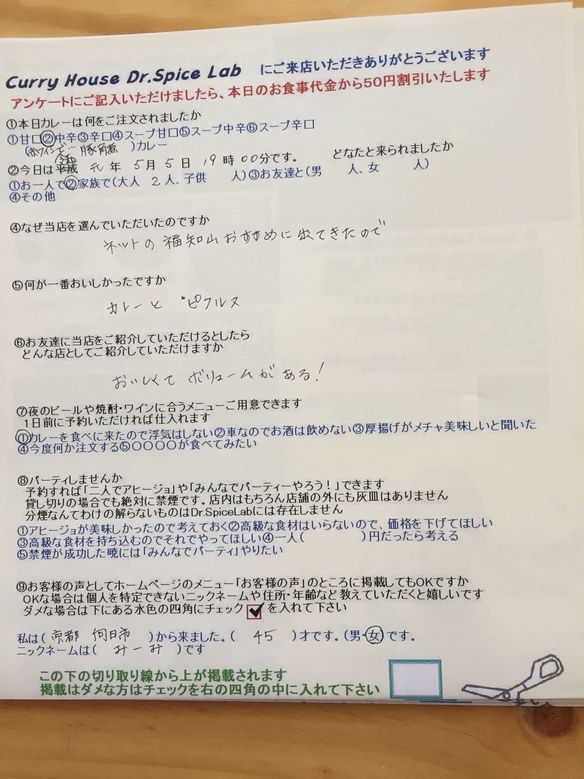 Curry House Dr.Spice Lab にご来店いただきありがとうございます
アンケートにご記入いただけましたら、本日のお食事代金から50円割引いたします
①本日カレーは何をご注文されましたか
①甘口②中辛③辛口④スープ甘口⑤スープ中辛⑥スープ辛口
豚角煮)カレー
令和
②今日は平成 元 年 5 月 5 日 19 時 00分です。 どなたと来られましたか
①お一人で②家族で(大人 2 人、子供 人)③お友達と(男 人、女 人)
④その他
④なぜ当店を選んでいただいたのですか
ネットの福知山おすすめに出てきたので
⑤何が一番おいしかったですか
カレーと ピクルス
⑥お友達に当店をご紹介していただけるとしたら
どんな店としてご紹介していただけますか
おいしくて ボリュームがある!
⑦夜のビールや焼酎・ワインに合うメニューご用意できます
1日前に予約いただければ仕入れます
①カレーを食べに来たので浮気はしない②車なのでお酒は飲めない③厚揚げがメチャ美味しいと聞いた
④今度何か注文する⑤〇〇〇〇が食べてみたい
⑧パーティしませんか
予約すれば「二人でアヒージョ」や「みんなでパーティーやろう!」できます
貸し切りの場合でも絶対に禁煙です。店内はもちろん店舗の外にも灰皿はありません
分煙なんてわけの解らないものはDr.SpiceLabには存在しません
①アヒージョが美味しかったので考えておく②高級な食材はいらないので、価格を下げてほしい
③高級な食材を持ち込むのでそれでやってほしい④一人( )円だったら考える
⑤禁煙が成功した暁には「みんなでパーティ」やりたい
⑨お客様の声としてホームページのメニュー「お客様の声」のところに掲載してもOKですか
OKな場合は個人を特定できないニックネームや住所・年齢など教えていただくと嬉しいです
ダメな場合は下にある水色の四角にチェック を入れて下さい
私は( 京都 向日市 )から来ました。( 45 )才です。(男・女)です。
ニックネームは( みーみ )です
この下の切り取り線から上が掲載されます
掲載はダメな方はチェックを右の四角の中に入れて下さい